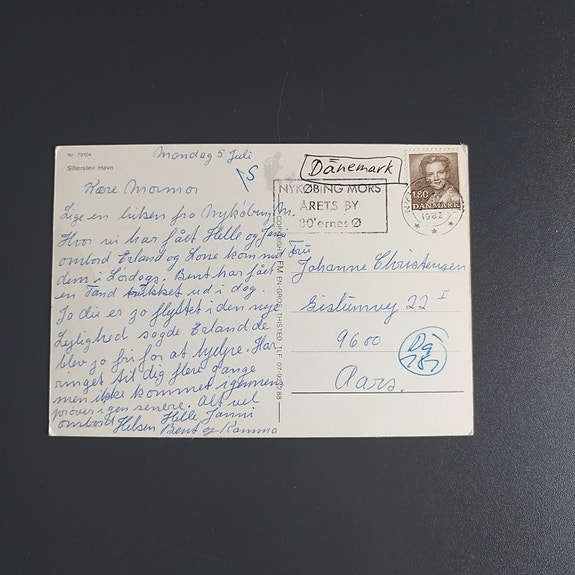 Nr. 79104
Sillerslev Havn
Mandag 5 Juli
Kære Mormor
Lige en hilsen fra Nykøbing M.
Hvor vi har fået Helle og Janni
ombord Erland og Kone kom med
dem i Lørdags. Bent har fået
en Tand trukket ud i dag.
Jo du er jo flyttet i den nye
Lejlighed sagde Erland de
blev jo fri for at hjelpe. Har
ringet til dig flere gange
men ikke kommet igennem
prøver igen senere. Alt vel
ombord Helle Janni
Hilsen Bent og Kamma
COPYRIGHT F.M. EN-GROS, THISTED TLF. 07-9
Dänemark
NYKØBING MORS
ÅRETS BY
80'ernes Ø
1982
1.80
DANMARK
Fru
Johanne Christensen
Gislumvej 22 I
9600
Aars.